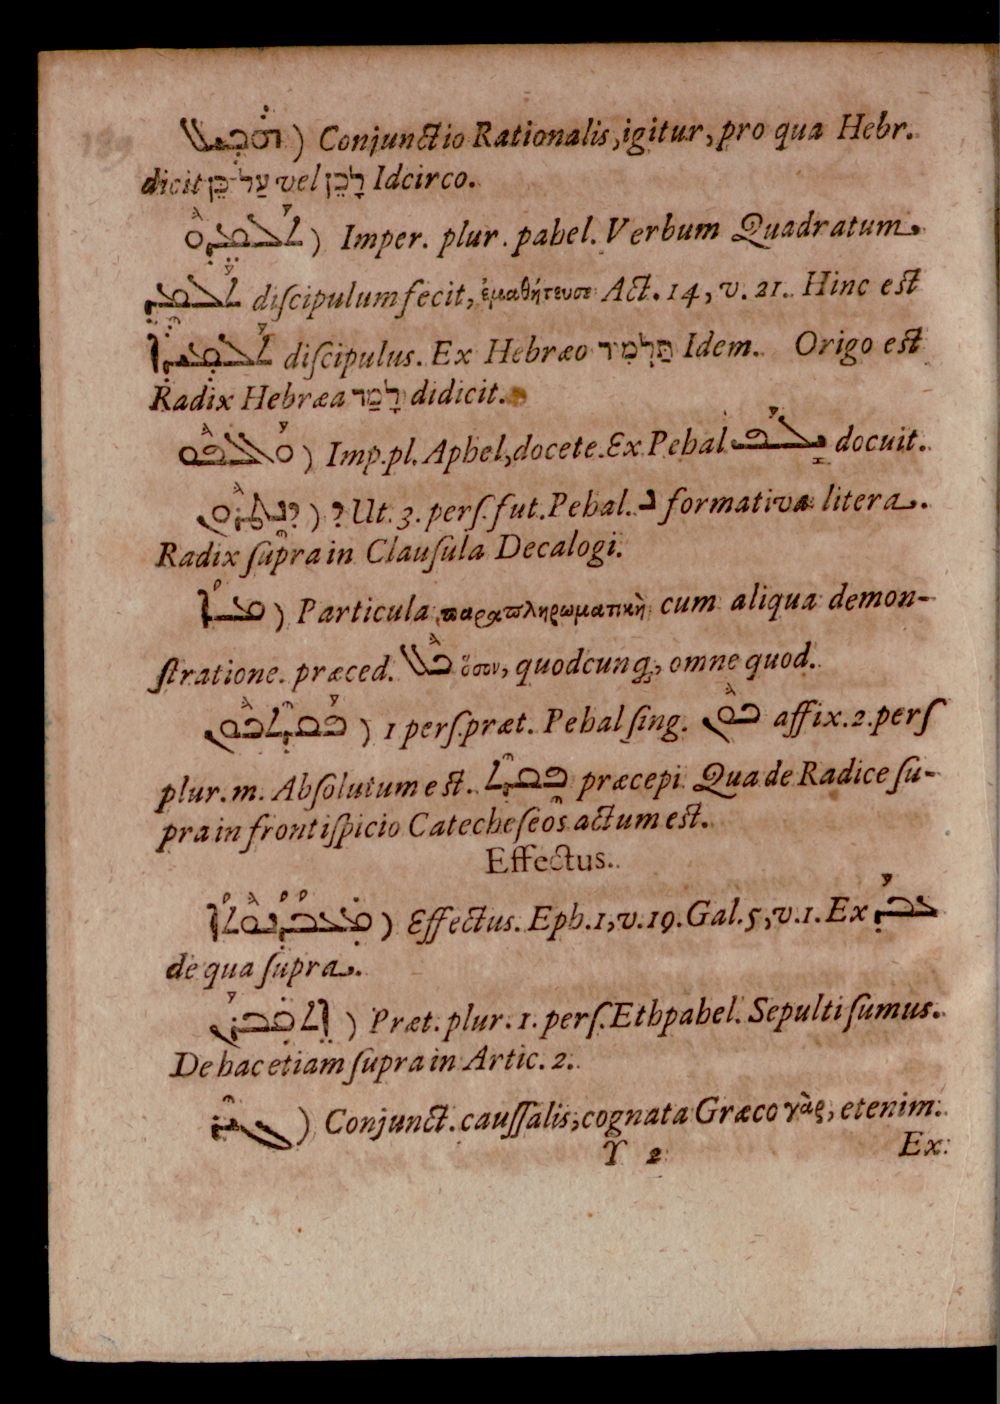 ܗܟܝܠ) Conjunctio Rationalis, igitur, pro qua Hebr.
dicit עַל־כֵּן vel לָכֵן Idcirco.
ܬܠܡܕܘ) Imper. plur. pahel. Verbum Quadratum
ܬܠܡܕ diſcipulum fecit, ἐμαθήτευσε Act. 14, v. 21. Hinc eſt
ܬܠܡܝܕܐ diſcipulus. Ex Hebræo תַּלְמִיד Idem. Origo eſt
Radix Hebræa לָמַד didicit.
ܘܐܠܦܘ) Imp. pl. Aphel, docete. Ex Pehal ܝܠܦ docuit.
ܕܢܛܪܘܢ) ܕ Ut. 3. perſ. fut. Pehal. ܢ formativa litera.
Radix ſupra in Clauſula Decalogi.
ܡܐ) Particula παραπληρωματικὴ cum aliqua demon-
ſtratione. præced. ܟܠ ὅσον, quodcunq;, omne quod.
ܦܩܕܬܟܘܢ) 1 perſ. præt. Pehal ſing. ܟܘܢ affix. 2. perſ
plur. m. Abſolutum eſt. ܦܩܕܬ præcepi. Qua de Radice ſu-
pra in frontiſpicio Catecheſeos actum eſt.
Effectus.
ܡܥܒܕܢܘܬܐ) Effectus. Eph. 1, v. 19. Gal. 5, v. 1. Ex ܥܒܕ
de qua ſupra.
ܐܬܩܒܪܢ) Præt. plur. 1. perſ. Ethpahel. Sepulti ſumus.
De hac etiam ſupra in Artic. 2.
ܓܝܪ) Conjunct. cauſſalis, cognata Græco γὰρ, etenim.
Y 2 Ex